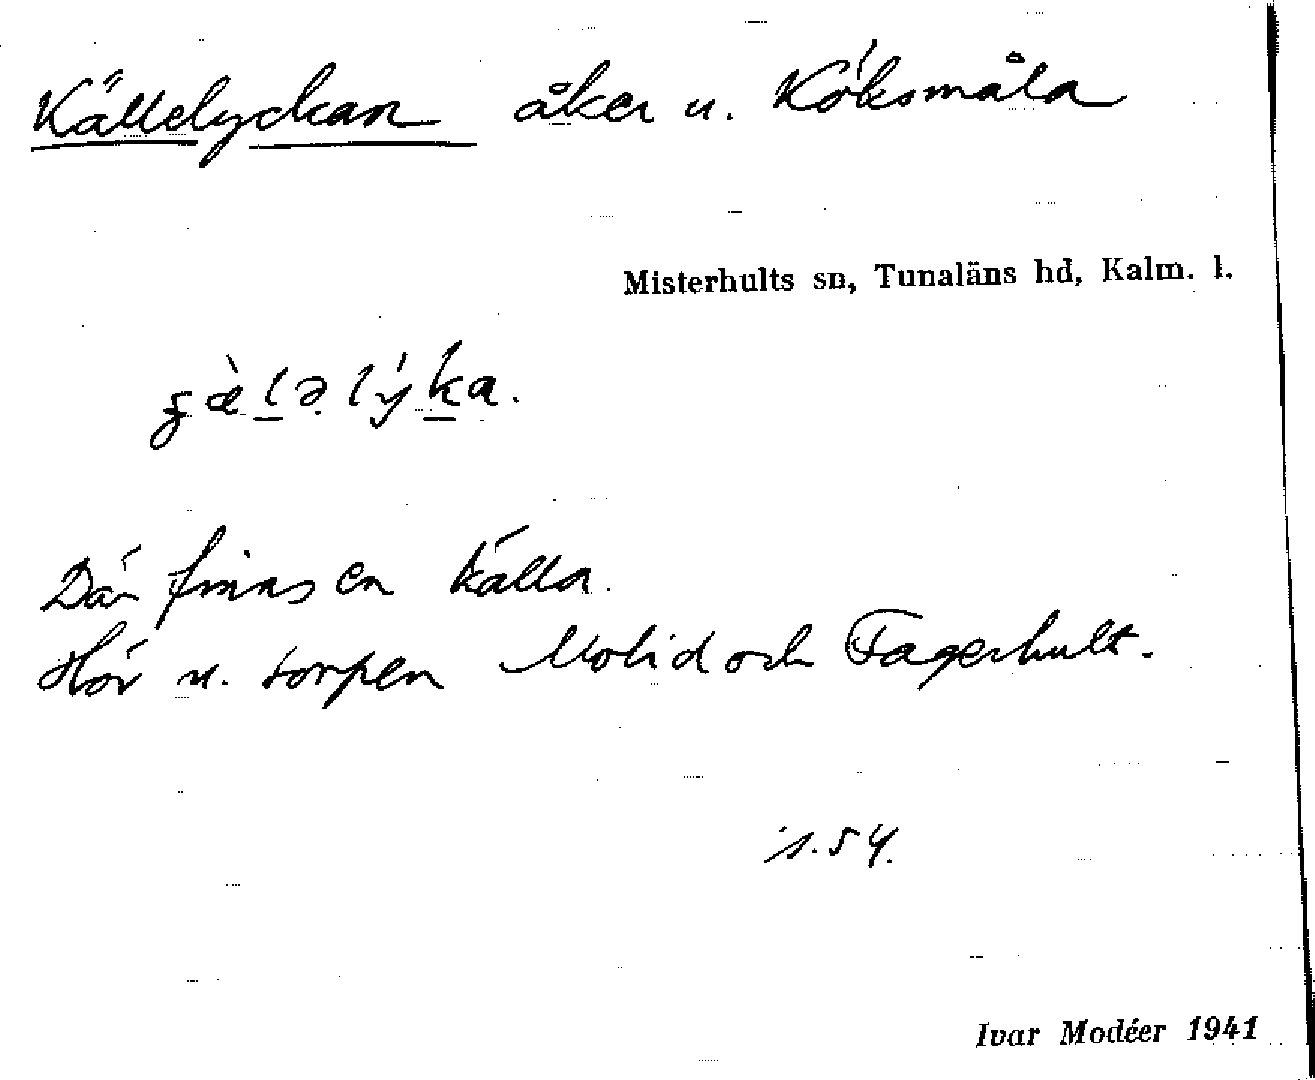 Källelyckan åker u. Köksmåla
Misterhults sn, Tunaläns hd, Kalm. l.
Där finns en källa.
Hör u. torpen Molid och Fagerhult.
s. 54.
Ivar Modéer 1941